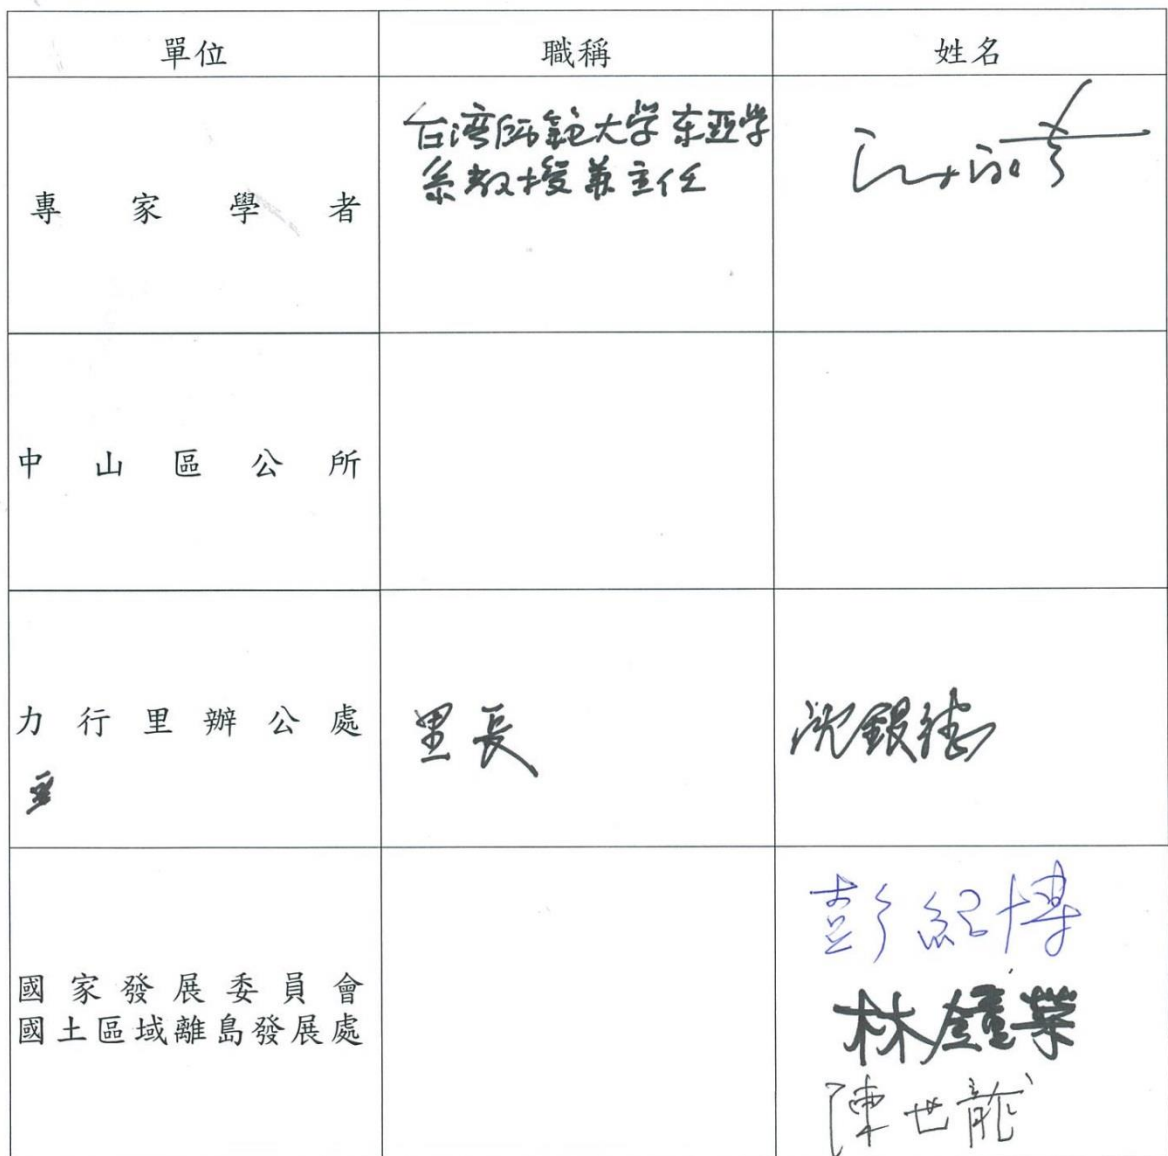 單位 職稱 姓名
專家學者
台湾師範大学东亚学
系教授兼主任
中山區公所
力行里辦公處
里長
沈銀德
國家發展委員會
國土區域離島發展處
彭紀博
林鐘榮
陳世龍